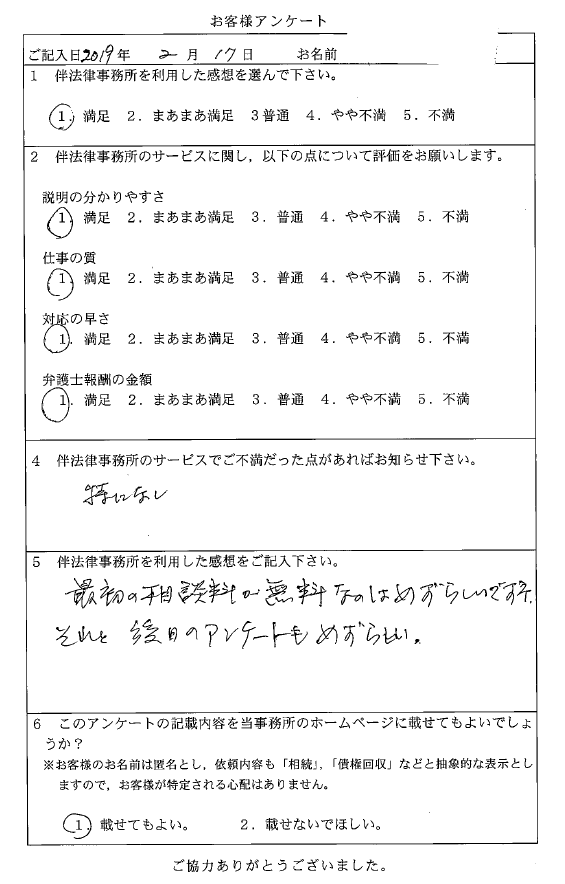 お客様アンケート
ご記入日2019年 2月 17日 お名前
1 伴法律事務所を利用した感想を選んで下さい。
1. 満足 2. まあまあ満足 3 普通 4. やや不満 5. 不満
2 伴法律事務所のサービスに関し,以下の点について評価をお願いします。
説明の分かりやすさ
1. 満足 2. まあまあ満足 3. 普通 4. やや不満 5. 不満
仕事の質
1 満足 2. まあまあ満足 3. 普通 4. やや不満 5. 不満
対応の早さ
1. 満足 2. まあまあ満足 3. 普通 4. やや不満 5. 不満
弁護士報酬の金額
1. 満足 2. まあまあ満足 3. 普通 4. やや不満 5. 不満
4 伴法律事務所のサービスでご不満だった点があればお知らせ下さい。
特になし
5 伴法律事務所を利用した感想をご記入下さい。
最初の相談料が無料なのはめずらしいですネ
それと 後日のアンケートもめずらしい。
6 このアンケートの記載内容を当事務所のホームページに載せてもよいでしょ
うか?
※お客様のお名前は匿名とし,依頼内容も「相続」,「債権回収」などと抽象的な表示とし
ますので,お客様が特定される心配はありません。
1. 載せてもよい。 2. 載せないでほしい。
ご協力ありがとうございました。